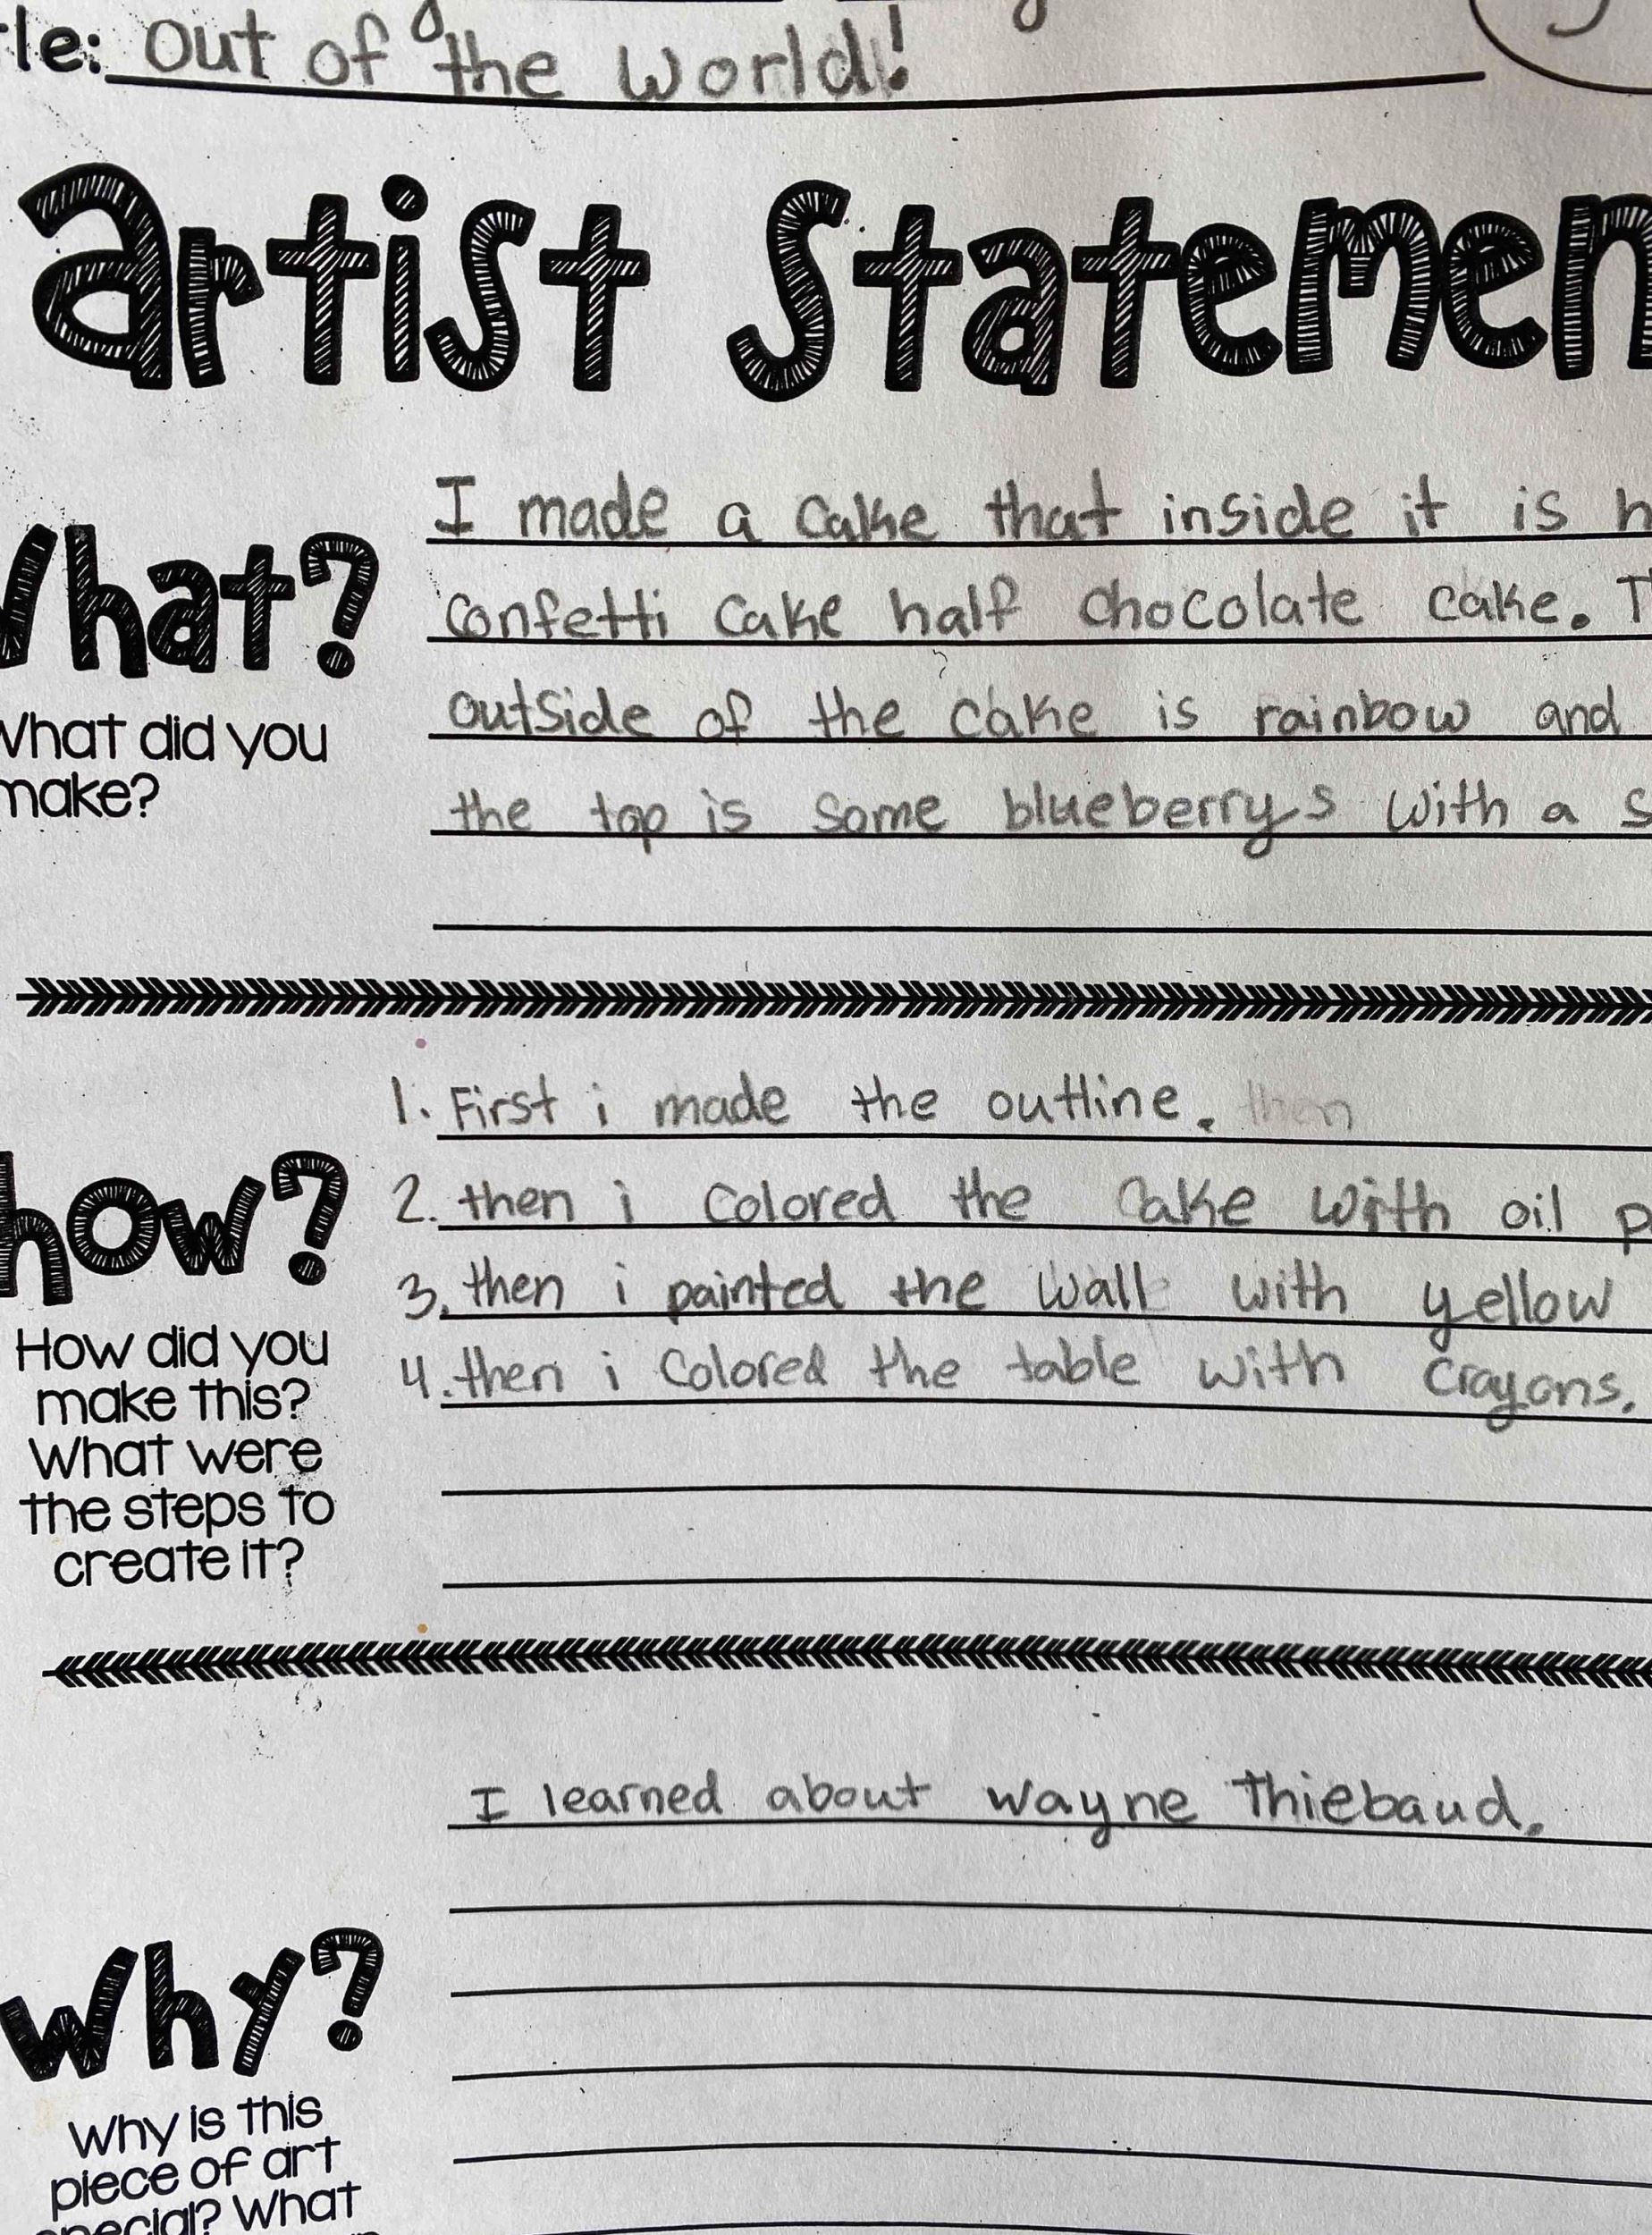 le: out of the world!
artist Statemen
What?
What did you
make?
I made a cake that inside it is h
confetti cake half chocolate cake. T
outside of the cake is rainbow and
the top is some blueberrys with a s
1. First i made the outline. then
2. then i colored the cake with oil p
3. then i painted the wall with yellow
4. then i colored the table with crayons.
how?
How did you
make this?
What were
the steps to
create it?
I learned about wayne Thiebaud.
Why?
Why is this
piece of art
special? What